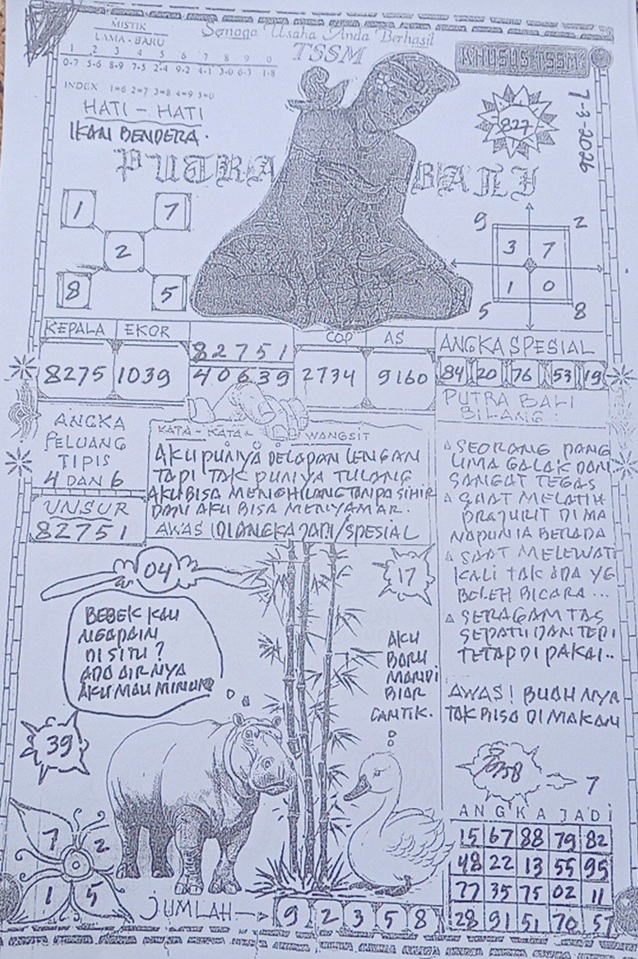 MISTIK
LAMA - BARU
1 2 3 4 5 6 7 8 9 0
0-7 5-6 8-9 7-5 2-4 9-2 4-1 3-0 6-3 1-8
INDEX 1=6 2=7 3=8 4=9 5=0
Semoga Usaha Anda Berhasil
TSSM
KHUSUS TSSM
HATI - HATI
IKAN BENDERA.
827
7-3-2026
PUTRA BALI
1 7
2
8 5
9 2
3 7
1 0
5 8
KEPALA EKOR
8275 1039
82751
40639
COP AS
2734 9160
ANGKA SPESIAL
84 20 76 53 19
ANGKA
PELUANG
TIPIS
4 DAN 6
UNSUR
82751
KATA - KATA WANGSIT
AKU PUNYA DELAPAN LENGAN
TAPI TAK PUNYA TULANG
AKU BISA MENGHILANG TANPA SIHIR
DAN AKU BISA MENYAMAR.
AWAS! DIANGKA JADI/SPESIAL
PUTRA BALI
BILANG:
SEORANG PANG
LIMA GALAK DAN
SANGAT TEGAS
SAAT MELATIH
PRAJURIT DI MA
NAPUN IA BERADA
SAAT MELEWATI
KALI TAK ADA YG
BOLEH BICARA...
SERAGAM TAS
SEPATU DAN TOPI
TETAP DI PAKAI..
AWAS! BUAHNYA
TAK BISA DI MAKAN
04
17
BEBEK KAU
NGAPAIN
DISITU?
ADA AIRNYA
AKU MAU MINUM
AKU
BARU
MANDI
BIAR
CANTIK.
39
58
7
ANGKA JADI
15 67 88 79 82
48 22 13 55 95
77 35 75 02 11
28 91 51 70 57
7 2
1 5
JUMLAH → 9 2 3 5 8